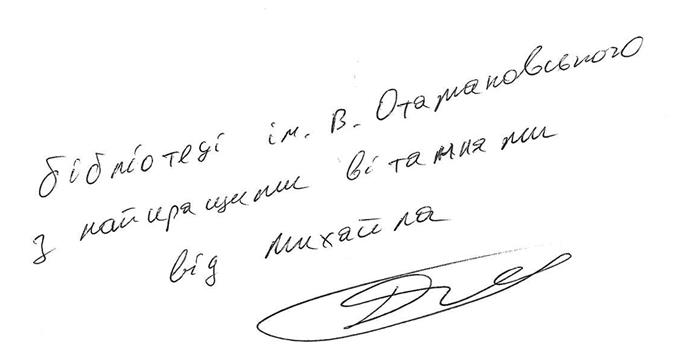 бібліотеці ім. В. Отамановського
з найкращими вітаннями
від Михайла